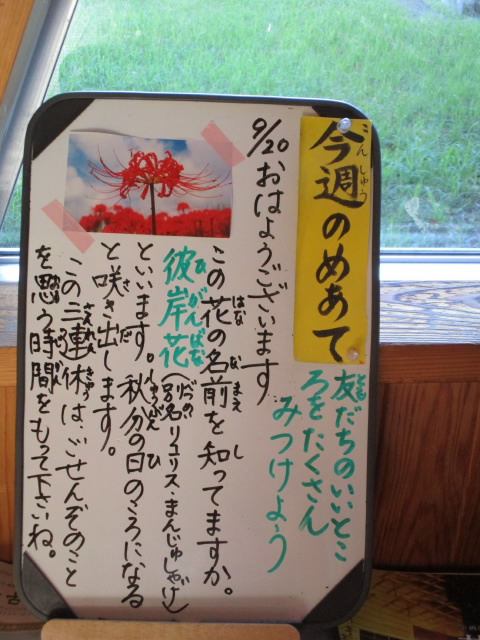 今週のめあて
友だちのいいとこ
ろをたくさん
みつけよう
9/20 おはようございます
この花の名前を知ってますか。
彼岸花(別名リコリス・まんじゅしゃげ)
といいます。秋分の日のころになる
と咲き出します。
この三連休は、ごせんぞのこと
を思う時間をもって下さいね。